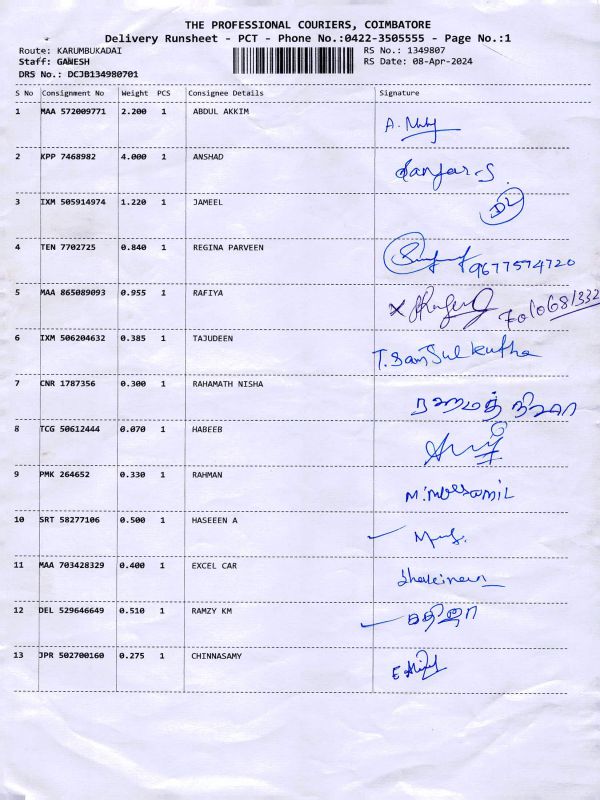 THE PROFESSIONAL COURIERS, COIMBATORE
Delivery Runsheet - PCT - Phone No.:0422-3505555 - Page No.:1
Route: KARUMBUKADAI RS No.: 1349807
Staff: GANESH RS Date: 08-Apr-2024
DRS No.: DCJB134980701
S No Consignment No Weight PCS Consignee Details Signature
1 MAA 572009771 2.200 1 ABDUL AKKIM
2 KPP 7468982 4.000 1 ANSHAD
3 IXM 505914974 1.220 1 JAMEEL
4 TEN 7702725 0.840 1 REGINA PARVEEN 9677574720
5 MAA 865089093 0.955 1 RAFIYA
6 IXM 506204632 0.385 1 TAJUDEEN
7 CNR 1787356 0.300 1 RAHAMATH NISHA ரஹமத் நிஷா
8 TCG 50612444 0.070 1 HABEEB
9 PMK 264652 0.330 1 RAHMAN
10 SRT 58277106 0.500 1 HASEEEN A
11 MAA 703428329 0.400 1 EXCEL CAR
12 DEL 529646649 0.510 1 RAMZY KM
13 JPR 502700160 0.275 1 CHINNASAMY